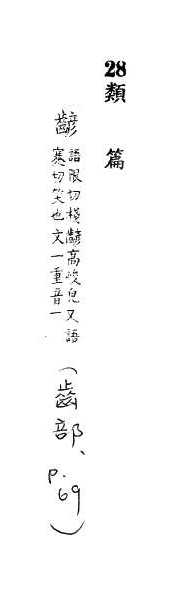 28類篇
齴
語限切棧齴高峻皃又語
蹇切笑也文一重音一
（齒部、p.69）